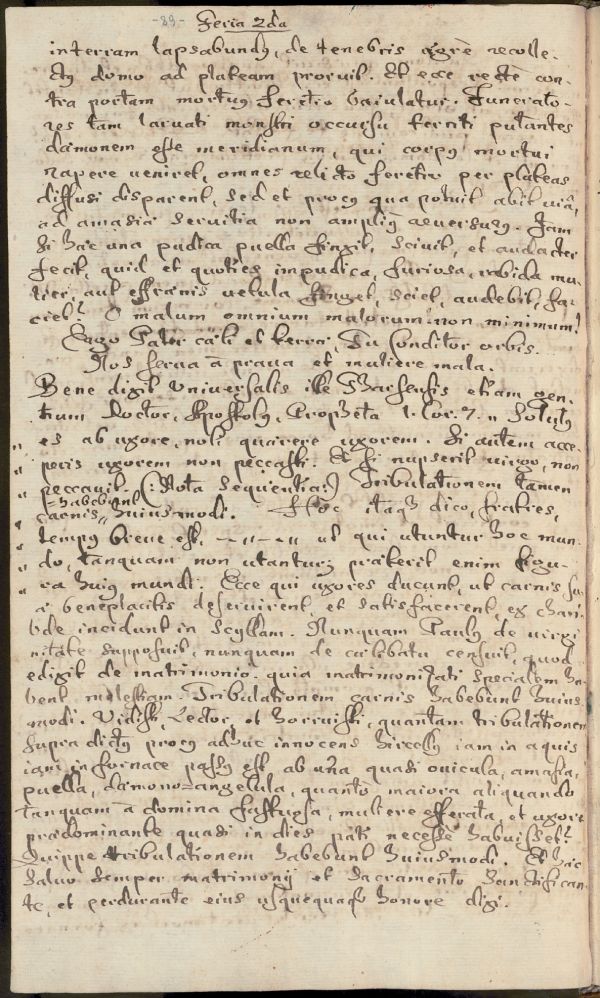 -89- Feria 2da
in terram lapsabundꝰ, de tenebris ægrè recolle-
ctꝰ domo ad plateam proruit. Et ecce rectè con-
tra portam mortuꝰ feretro baiulatur. Funerato-
res tam larvati monstri occursu territi putantes
dæmonem esse meridianum, qui corpꝰ mortui
rapere veniret, omnes relicto feretro per plateas
diffusi disparent, sed et procꝰ qua potuit abit viâ,
ad amasiæ servitia non ampliꝰ reversurꝰ. Jam
si hæc una pudica puella finxit, scivit, et audacter
fecit, quid et quoties impudica, furiosa, rabida mu-
lier, aut effrænis vetula finget, sciet, audebit, fa-
ciet? O malum omnium malorum non minimum!
Ergo Pater cæli et terræ, Tu Conditor orbis.
Nos serva à prava et muliere mala.
Bene dixit Universalis ille Tharsensis etiam gen-
tium Doctor, Apostolꝰ, Propheta 1. Cor. 7. „ Solutꝰ
„ es ab uxore, noli quærere uxorem. Si autem acce-
„ peris uxorem non peccasti. Et si nupserit virgo, non
„ peccavit (: Nota sequentia:) Tribulationem tamen
„ carnis =habebunt „ huiusmodi. Hoc itaqꝫ dico, fratres,
„ tempꝰ breve est, -„-„ ut qui utuntur hoc mun-
„ do, tanquam non utantur; præterit enim figu-
„ ra huiꝰ mundi. Ecce qui uxores ducunt, ut carnis su-
æ beneplacitis deservirent, et satisfacerent, ex chari-
bde incidunt in Scyllam. Nunquam Paulꝰ de virgi-
nitate supposuit, nunquam de cælibatu censuit, quod
edixit de matrimonio. quia matrimonizati specialem ha-
bent molestiam. Tribulationem carnis habebunt huius
modi. Vidisti, Lector, et horruisti, quantam tribulationem
supra dictꝰ procꝰ adhuc innocens hircellꝰ iam in aquis
iam in fornace passꝰ est ab una quasi ovicula, amasia,
puella, dæmono-angelula, quanto maiora aliquando
tanquam à domina fastuosa, muliere efferata, et uxore
prædominante quasi in dies pati necesse habuisset?
Quippe tribulationem habebunt huiusmodi. Et hæc
salvo semper matrimonij et Sacramento Sanctifican-
te, et perdurante eius usquequaqꝫ honore dixi.